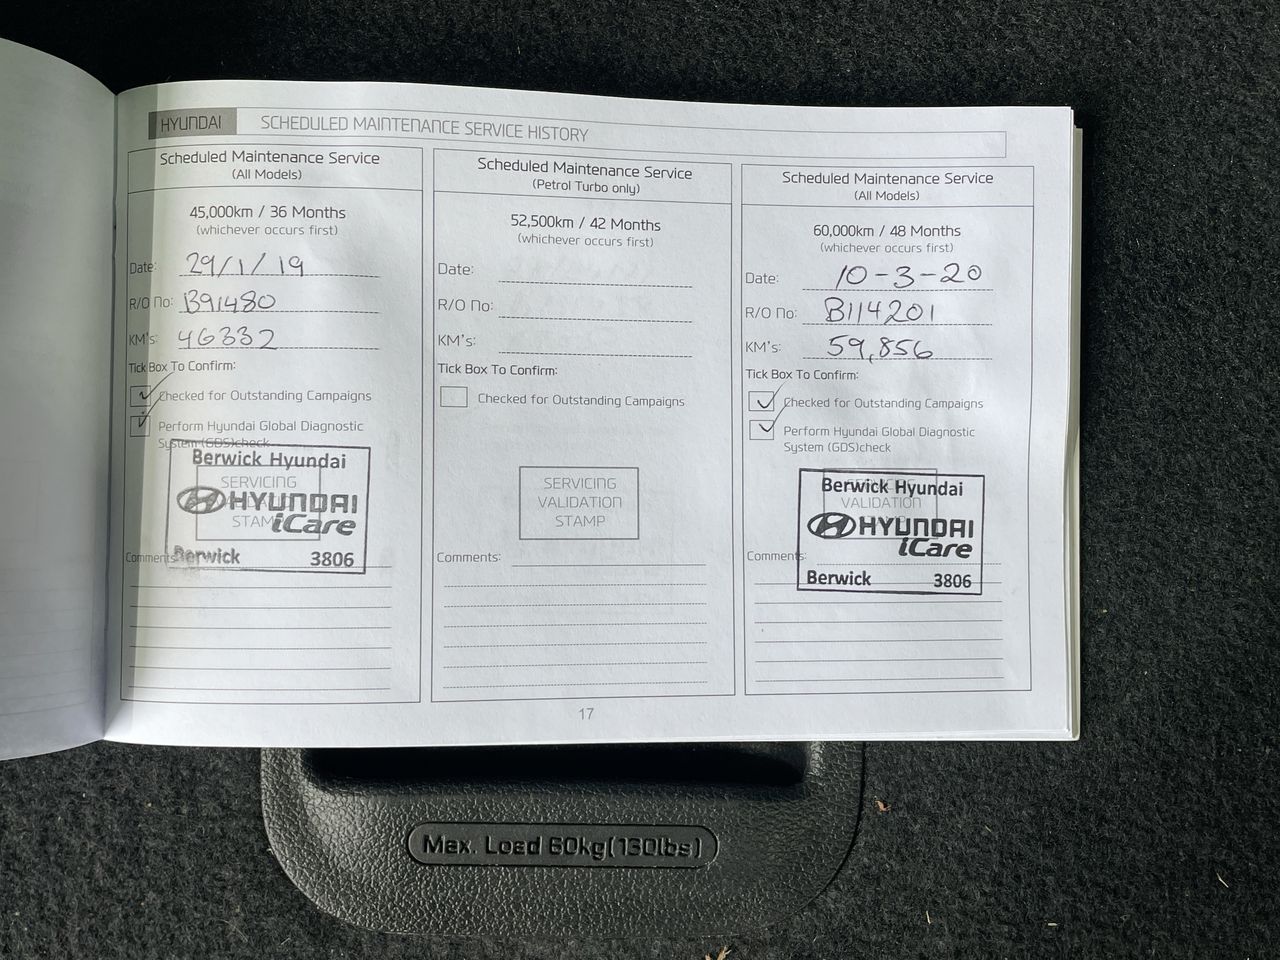 HYUNDAI SCHEDULED MAINTENANCE SERVICE HISTORY
Scheduled Maintenance Service
(All Models)
45,000km / 36 Months
(whichever occurs first)
Date: 29/1/19
R/O No: B91480
KM's: 46332
Tick Box To Confirm:
Checked for Outstanding Campaigns
Perform Hyundai Global Diagnostic
System (GDS)check
Berwick Hyundai
SERVICING
HYUNDAI
STAMP
iCare
Comments:
Berwick 3806
Scheduled Maintenance Service
(Petrol Turbo only)
52,500km / 42 Months
(whichever occurs first)
Date:
R/O No:
KM's:
Tick Box To Confirm:
Checked for Outstanding Campaigns
SERVICING
VALIDATION
STAMP
Comments:
Scheduled Maintenance Service
(All Models)
60,000km / 48 Months
(whichever occurs first)
Date: 10-3-20
R/O No: B114201
KM's: 59,856
Tick Box To Confirm:
Checked for Outstanding Campaigns
Perform Hyundai Global Diagnostic
System (GDS)check
Berwick Hyundai
VALIDATION
HYUNDAI
iCare
Comments:
Berwick 3806
17
Max. Load 60kg(130lbs)